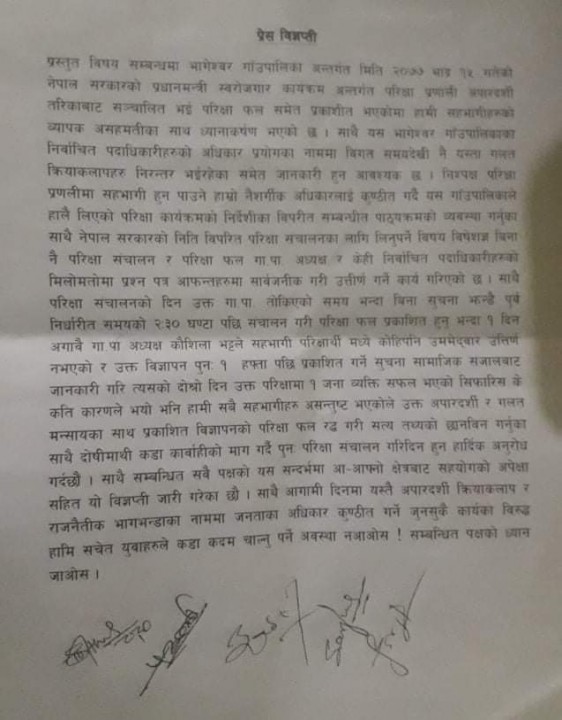 प्रेस विज्ञप्ती
प्रस्तुत विषय सम्बन्धमा भागेश्वर गाँउपालिका अन्तर्गत मिति २०७७ भाद्र १५ गतेको
नेपाल सरकारको प्रधानमन्त्री स्वरोजगार कार्यक्रम अन्तर्गत परिक्षा प्रणाली अपारदर्शी
तरिकाबाट सञ्चालित भई परिक्षा फल समेत प्रकाशीत भएकोमा हामी सहभागीहरुको
व्यापक असहमतीका साथ ध्यानाकर्षण भएको छ । साथै यस भागेश्वर गाँउपालिकाका
निर्वाचित पदाधिकारीहरुको अधिकार प्रयोगका नाममा विगत समयदेखी नै यस्ता गलत
क्रियाकलापहरु निरन्तर भईरहेका समेत जानकारी हुन आवश्यक छ । निश्पक्ष परिक्षा
प्रणलीमा सहभागी हुन पाउने हाम्रो नैशर्गीक अधिकारलाई कुण्ठीत गर्दै यस गाँउपालिकाले
हालै लिएको परिक्षा कार्यक्रमको निर्देशीका विपरीत सम्बन्धीत पाठ्यक्रमको व्यवस्था गर्नुका
साथै नेपाल सरकारको निति विपरित परिक्षा संचालनका लागि लिनुपर्ने विषय विषेशज्ञ बिना
नै परिक्षा संचालन र परिक्षा फल गा.पा. अध्यक्ष र केही निर्वाचित पदाधिकारीहरुको
मिलोमतोमा प्रश्न पत्र आफन्तहरुमा सार्वजनीक गरी उत्तीर्ण गर्ने कार्य गरिएको छ । साथै
परिक्षा संचालनको दिन उक्त गा.पा. तोकिएको समय भन्दा बिना सुचना झन्डै पुर्व
निर्धारीत समयको २:३० घण्टा पछि संचालन गरी परिक्षा फल प्रकाशित हुनु भन्दा १ दिन
अगावै गा.पा अध्यक्ष कौशिला भट्टले सहभागी परिक्षार्थी मध्ये कोहिपनि उममेद्वार उत्तिर्ण
नभएको र उक्त विज्ञापन पुनः १ हफ्ता पछि प्रकाशित गर्ने सुचना सामाजिक संजालबाट
जानकारी गरि त्यसको दोश्रो दिन उक्त परिक्षामा १ जना व्यक्ति सफल भएको सिफारिस के
कति कारणले भयो भनि हामी सबै सहभागीहरु असन्तुष्ट भएकोले उक्त अपारदर्शी र गलत
मन्सायका साथ प्रकाशित विज्ञापनको परिक्षा फल रद्ध गरी सत्य तथ्यको छानविन गर्नुका
साथै दोषीमाथी कडा कार्वाहीको माग गर्दै पुनः परिक्षा संचालन गरिदिन हुन हार्दिक अनुरोध
गर्दछौं । साथै सम्बन्धित सबै पक्षको यस सन्दर्भमा आ-आफ्नो क्षेत्रबाट सहयोगको अपेक्षा
सहित यो विज्ञप्ती जारी गरेका छौ । साथै आगामी दिनमा यस्तै अपारदर्शी क्रियाकलाप र
राजनैतीक भागभन्डाका नाममा जनताका अधिकार कुण्ठीत गर्ने जुनसुकै कार्यको विरुद्ध
हामि सचेत युवाहरुले कडा कदम चाल्नु पर्ने अवस्था नआओस ! सम्बन्धित पक्षको ध्यान
जाओस ।